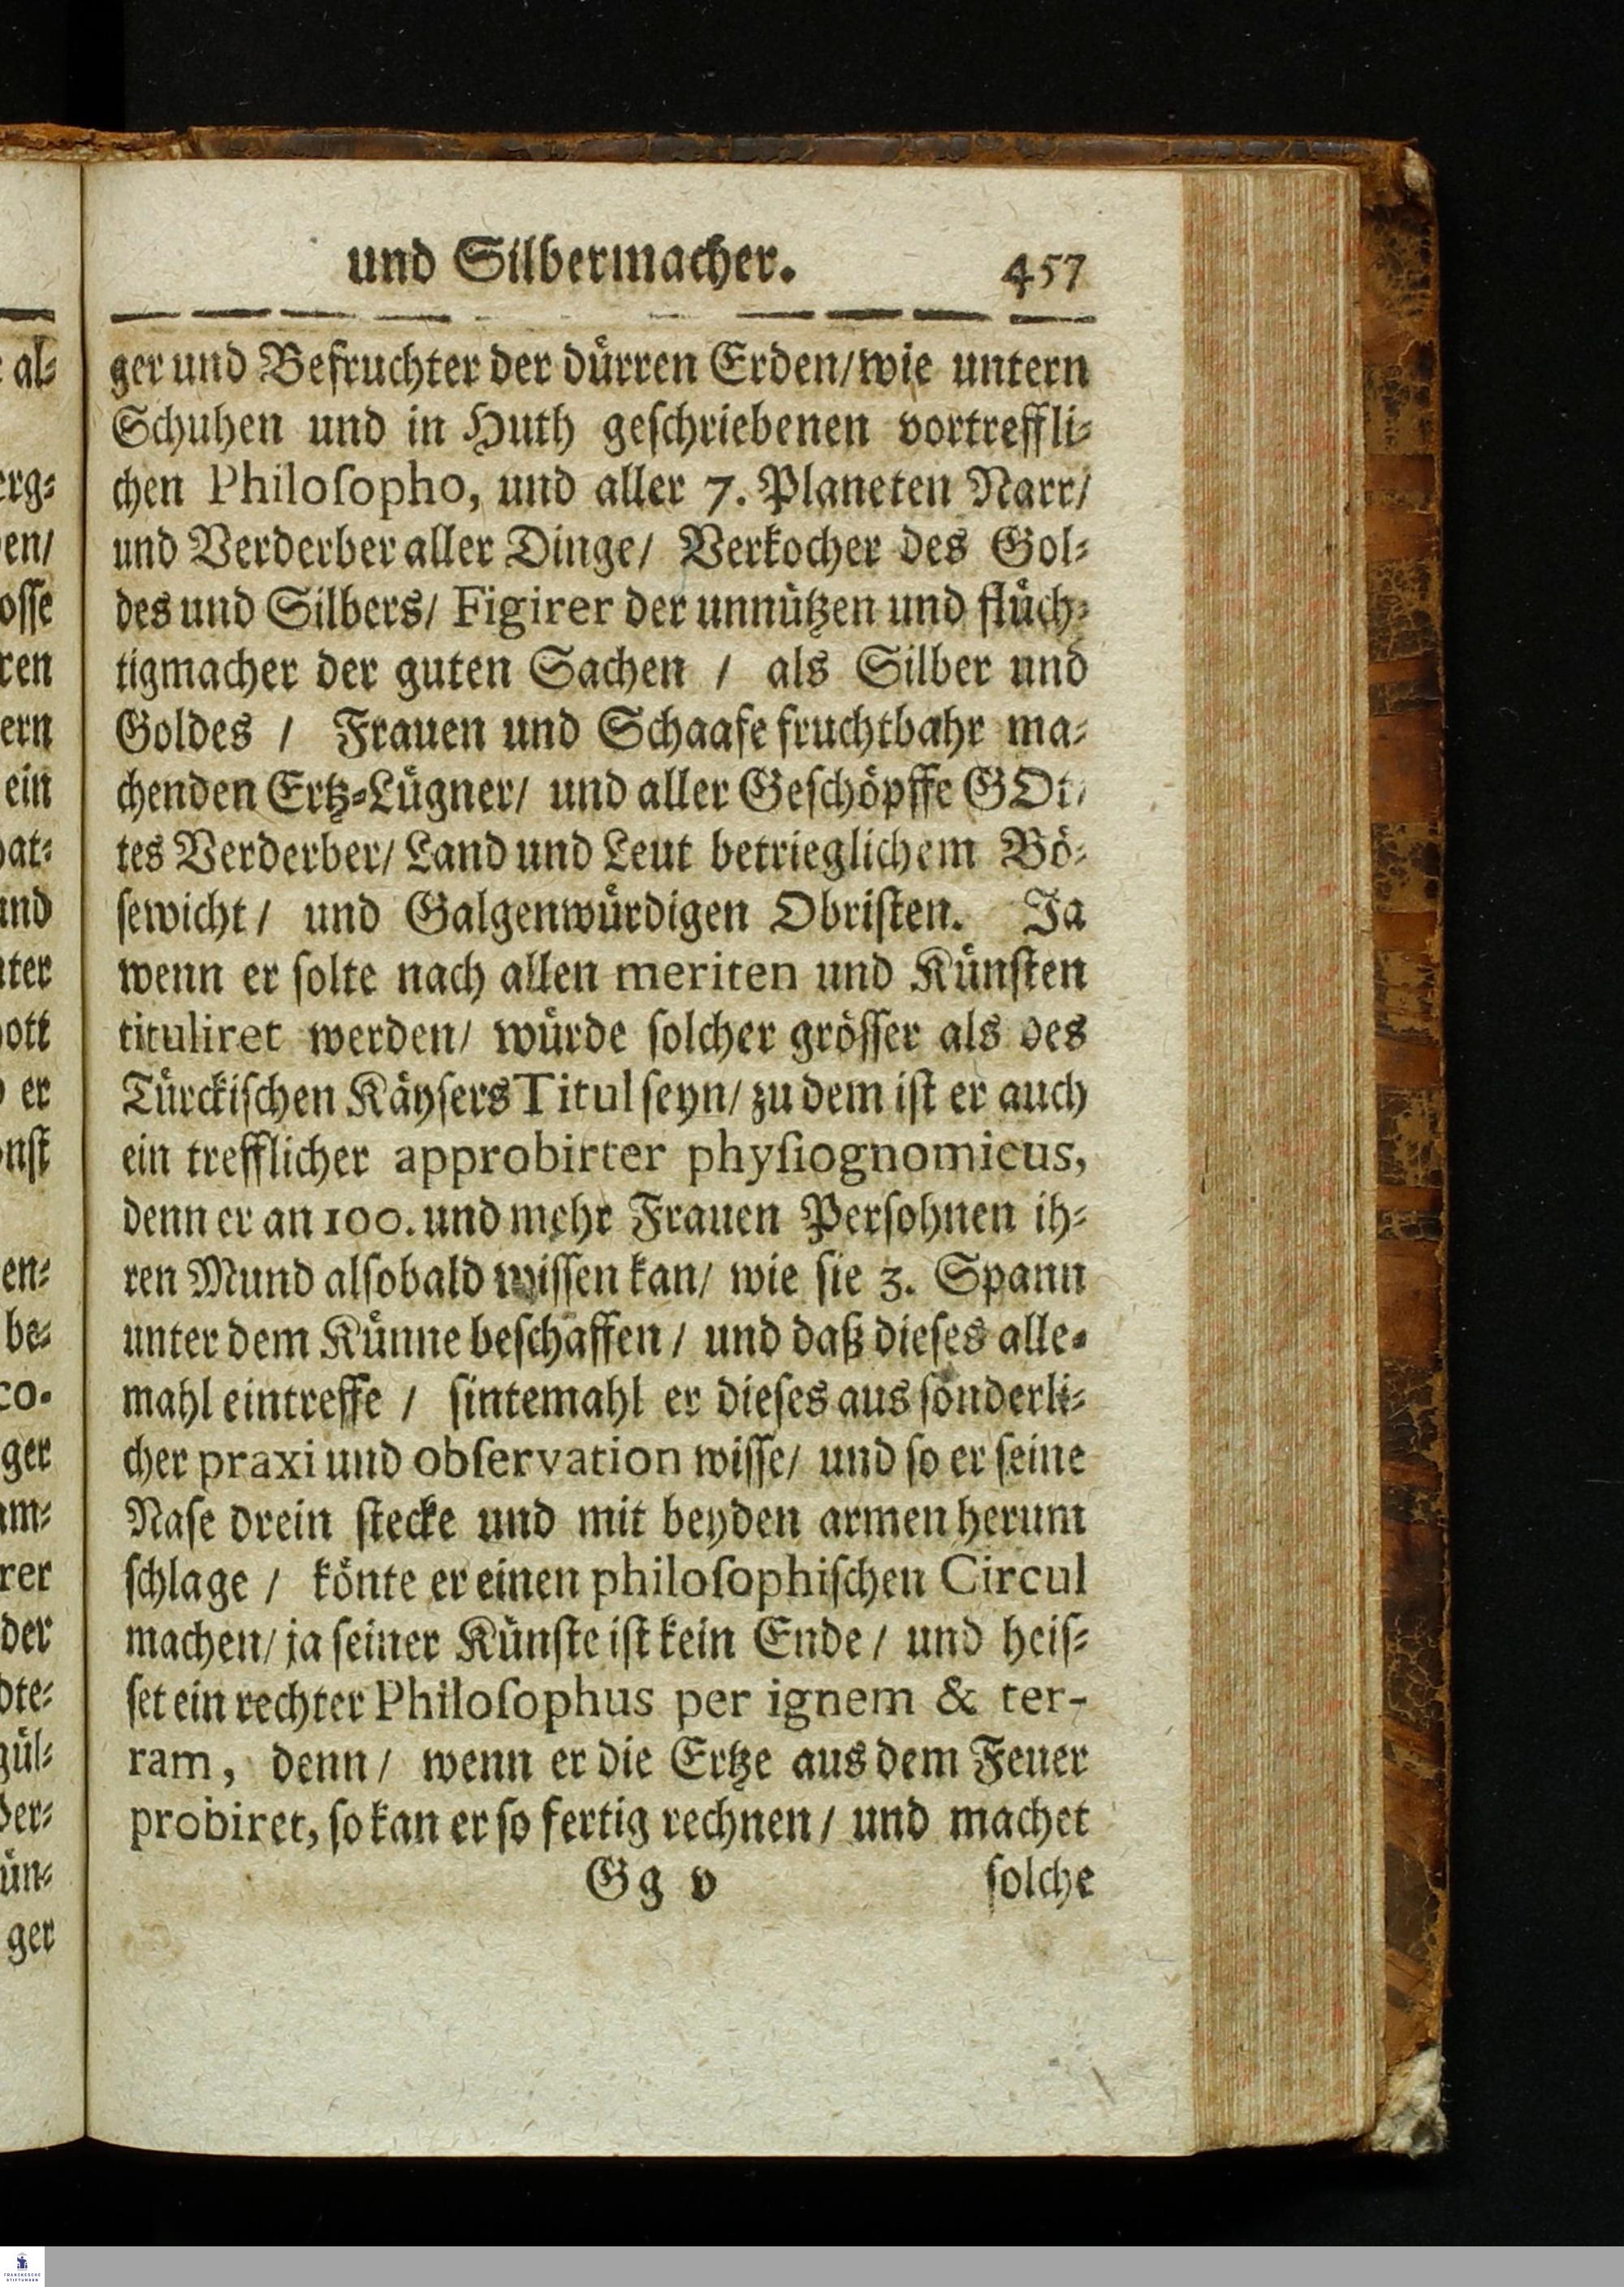 und Silbermacher. 457
ger und Befruchter der dürren Erden/wie untern
Schuhen und in Huth geſchriebenen vortreffli⸗
chen Philoſopho, und aller 7. Planeten Narr/
und Verderber aller Dinge/ Verkocher des Gol⸗
des und Silbers/ Figirer der unnützen und flüch⸗
tigmacher der guten Sachen / als Silber und
Goldes / Frauen und Schaafe fruchtbahr ma⸗
chenden Ertz⸗Lügner/ und aller Geſchöpffe GOt⸗
tes Verderber/ Land und Leut betrieglichem Bö⸗
ſewicht/ und Galgenwürdigen Obriſten. Ja
wenn er ſolte nach allen meriten und Künſten
tituliret werden/ würde ſolcher gröſſer als des
Türckiſchen Käyſers Titul ſeyn/ zu dem iſt er auch
ein trefflicher approbirter phyſiognomicus,
denn er an 100. und mehr Frauen Perſohnen ih⸗
ren Mund alſobald wiſſen kan/ wie ſie 3. Spann
unter dem Künne beſchaffen / und daß dieſes alle⸗
mahl eintreffe / ſintemahl er dieſes aus ſonderli⸗
cher praxi und obſervation wiſſe/ und ſo er ſeine
Naſe drein ſtecke und mit beyden armen herum
ſchlage / könte er einen philoſophiſchen Circul
machen/ ja ſeiner Künſte iſt kein Ende / und heiſ⸗
ſet ein rechter Philoſophus per ignem & ter-
ram, denn/ wenn er die Ertze aus dem Feuer
probiret, ſo kan er ſo fertig rechnen / und machet
Gg v ſolche
al⸗
erg⸗
en/
oſſe
ren
ern
ein
at⸗
und
ter
ott
er
nſt
en⸗
be⸗
co-
ger
am⸗
rer
der
dte⸗
gül⸗
der⸗
ün⸗
ger
FRANCKESCHE
STIFTUNGEN